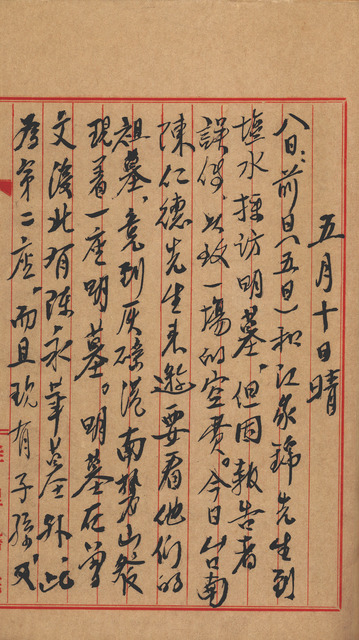 五月十日晴
八日：前日（五日）和江家錦先生到
塩水採訪明墓，但因報告者
誤傳，以致一場的空費。今日台南
陳仁德先生来邀要看他們的
祖墓，竟到灰磘港南勢山發
現着一座明墓。明墓在曾
文溪北有陈永華墓外，此
為第二座。而且現有子孫。又